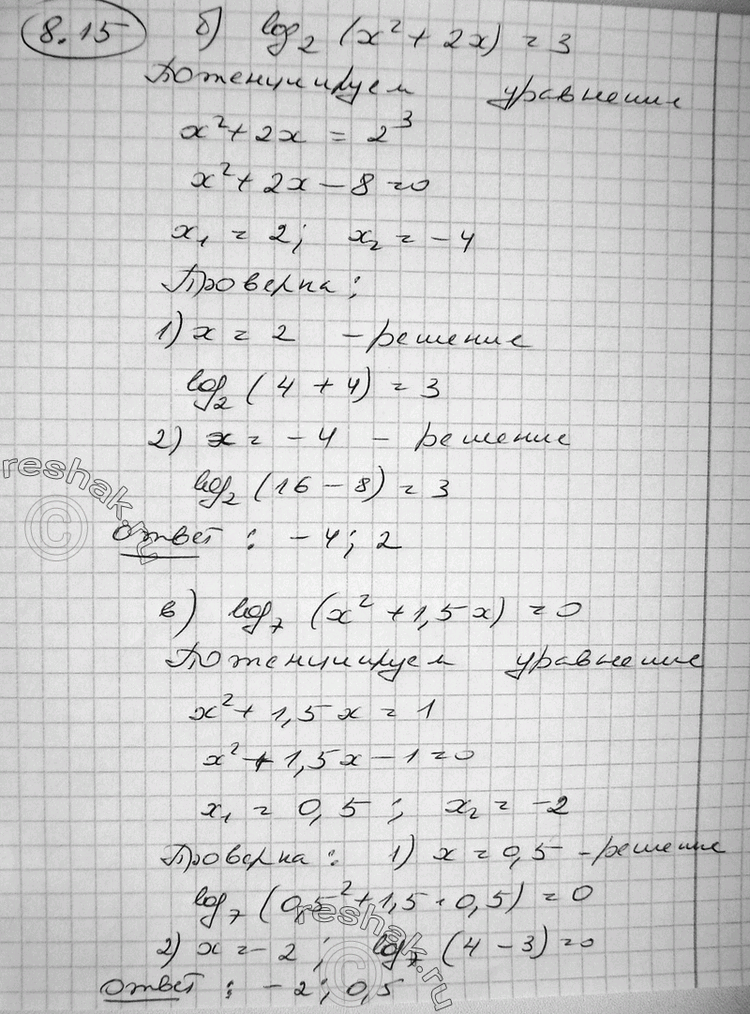 8.15 б) log₂ (x² + 2x) = 3
Потенциируем уравнение
x² + 2x = 2³
x² + 2x − 8 = 0
x₁ = 2; x₂ = −4
Проверка:
1) x = 2 − решение
log₂ (4 + 4) = 3
2) x = −4 − решение
log₂ (16 − 8) = 3
reshak.ru
©
Ответ: −4; 2
в) log₇ (x² + 1,5x) = 0
Потенциируем уравнение
x² + 1,5x = 1
x² + 1,5x − 1 = 0
x₁ = 0,5; x₂ = −2
Проверка: 1) x = 0,5 − решение
log₇ (0,5² + 1,5 · 0,5) = 0
2) x = −2; log₇ (4 − 3) = 0
reshak.ru
©
Ответ: −2; 0,5